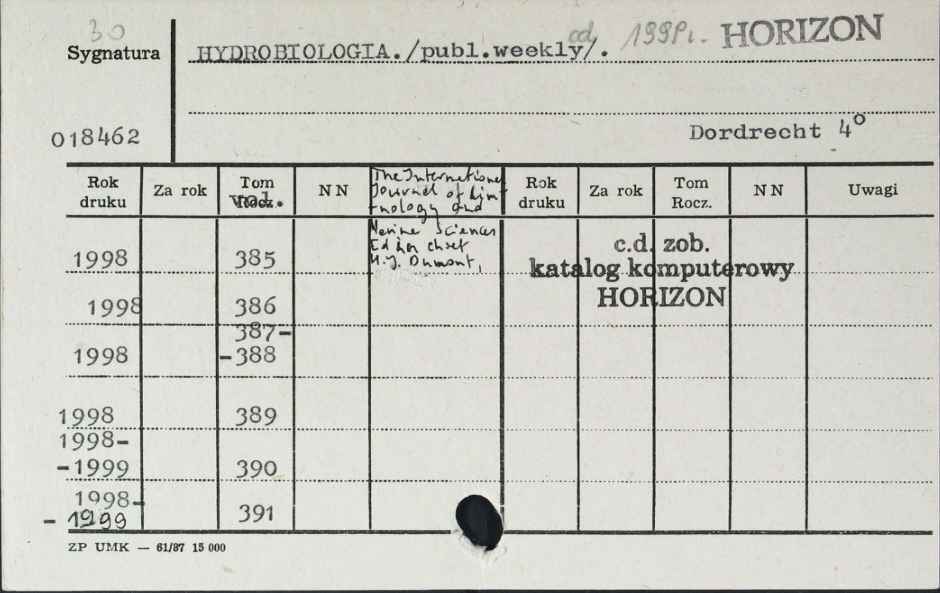 30
Sygnatura HYDROBIOLOGIA./publ.weekly/. od 199 r. HORIZON
018462 Dordrecht 4°
Rok druku Za rok Tom Rocz. vol. N N The International Journal of Lim- Rok druku Za rok Tom Rocz. N N Uwagi
-nology and
Marine Sciences
Editor chief
H.J. Dumont,
c.d. zob.
katalog komputerowy
HORIZON
1998 385
1998 386
387-
1998 -388
1998 389
1998-
-1999 390
1998-
-1999 391
ZP UMK — 61/87 15 000